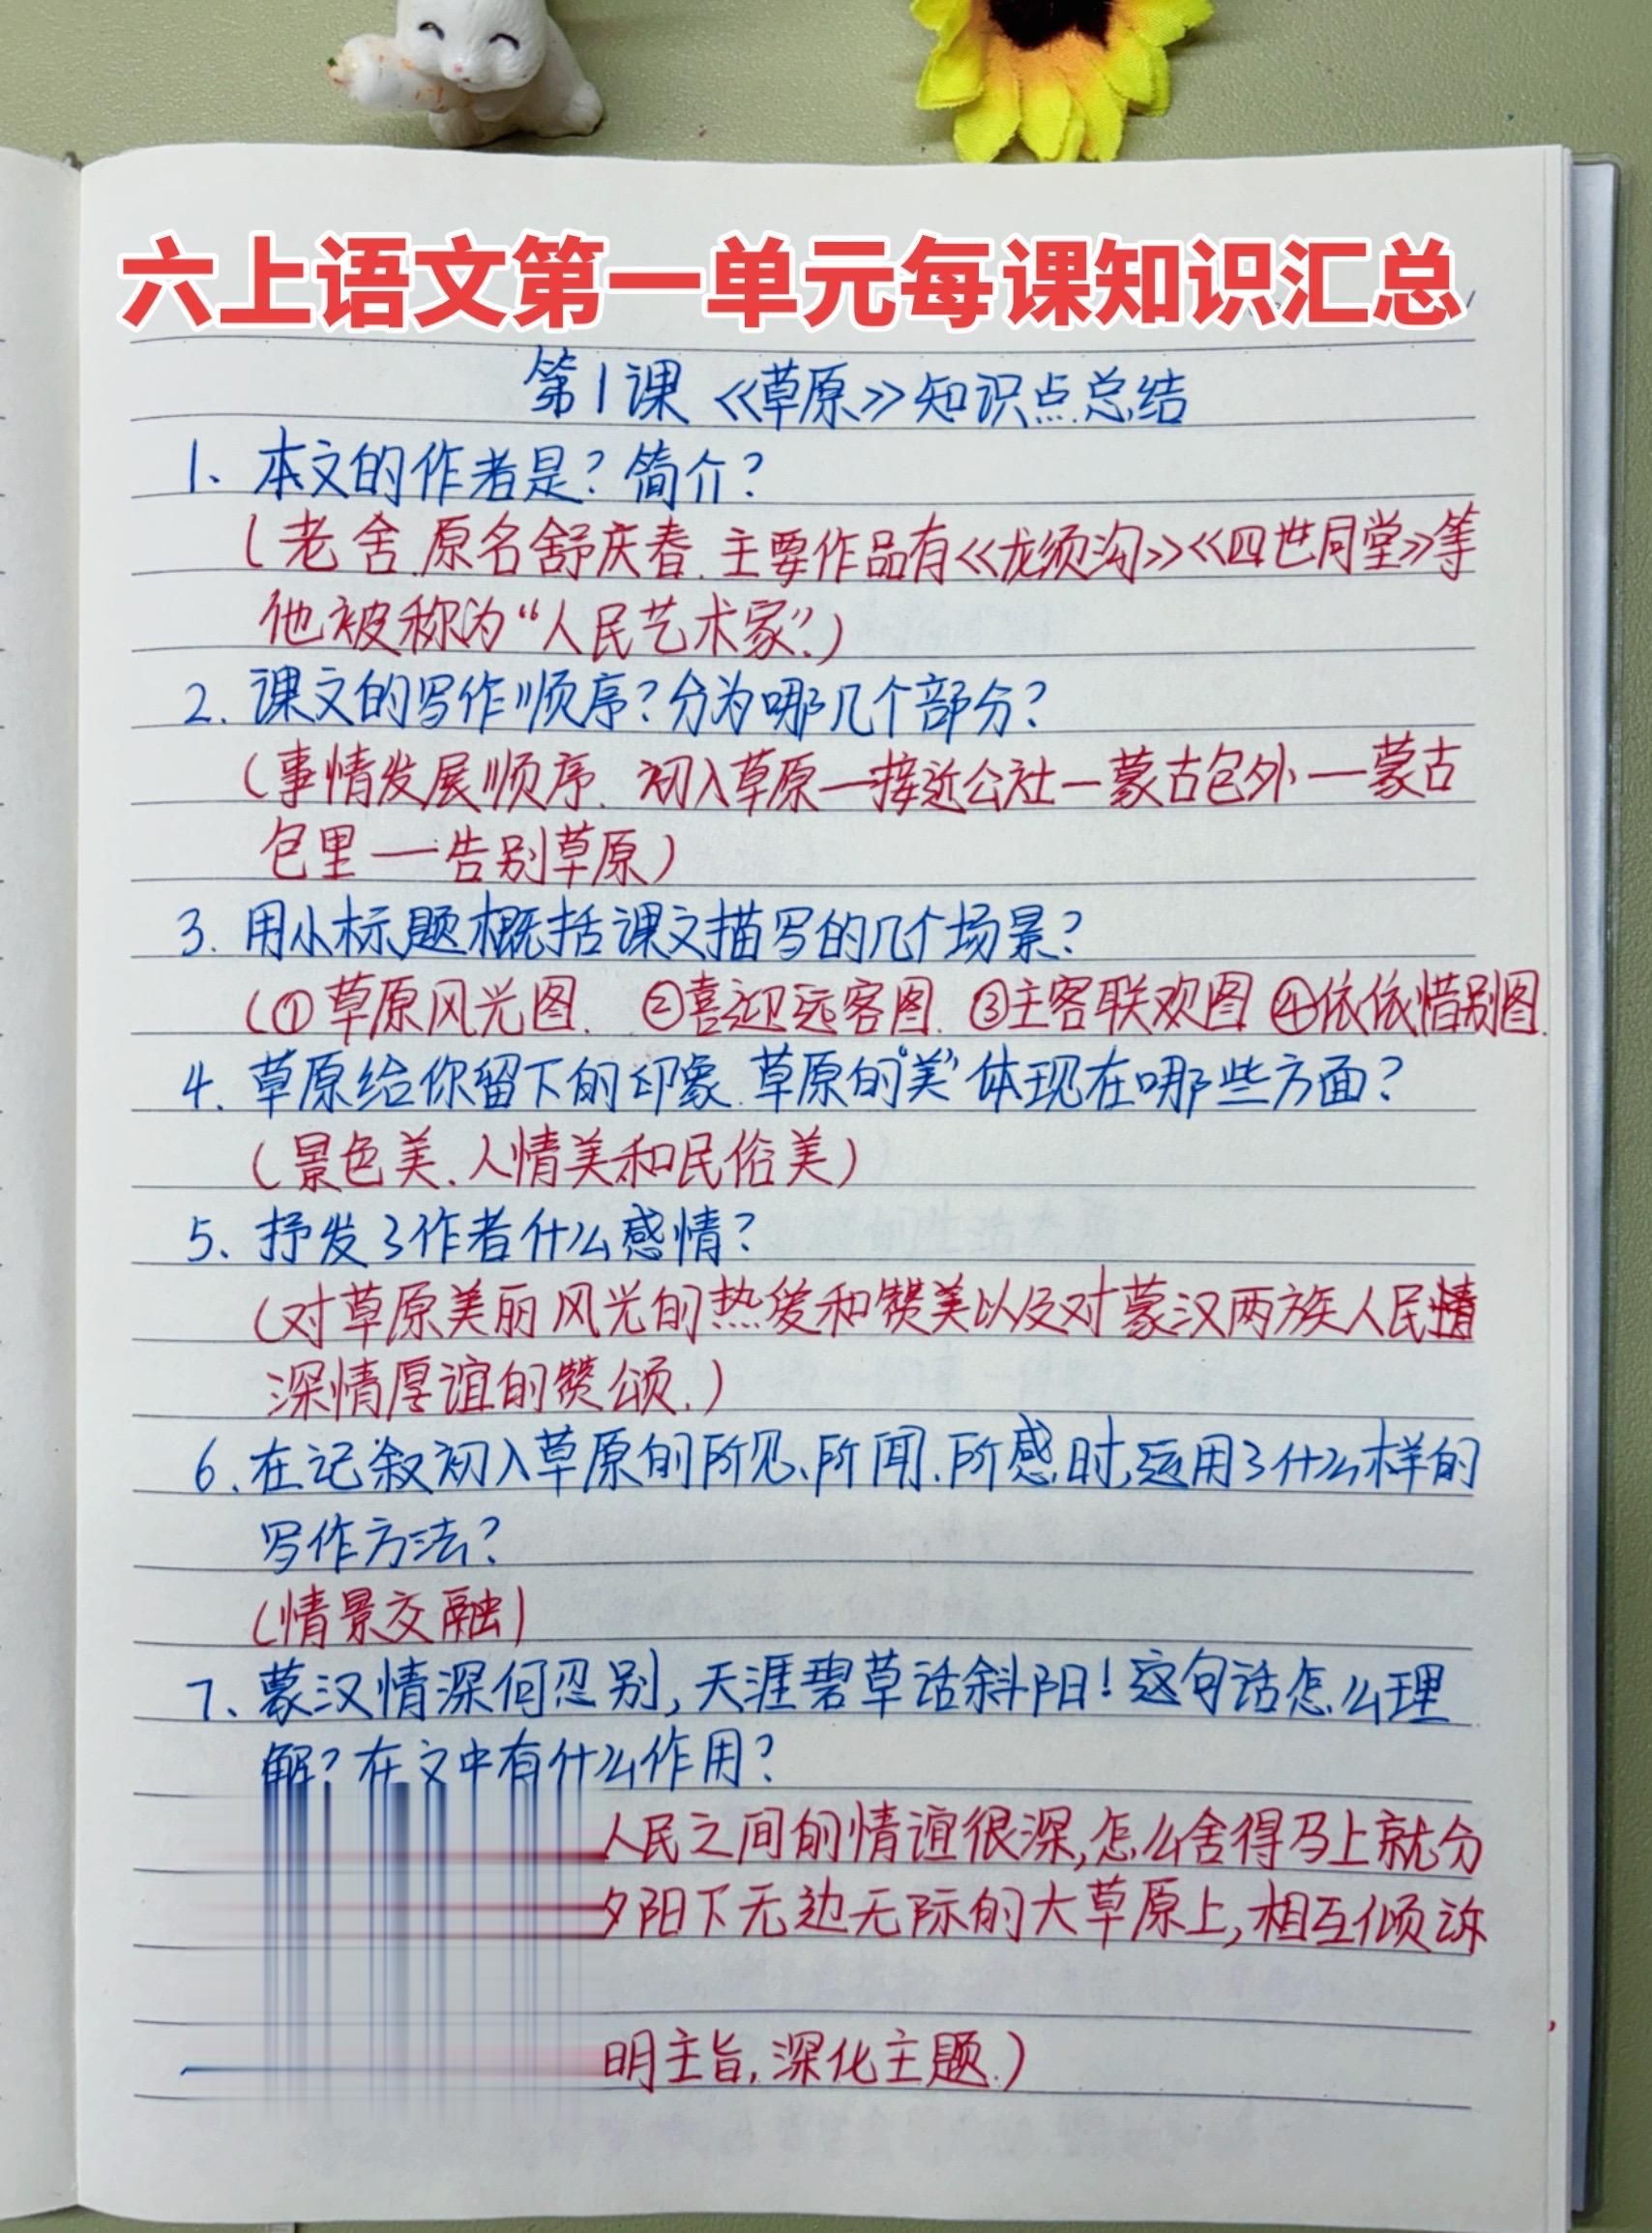 六上语文第一单元每课知识汇总
第1课《草原》知识点总结
1、本文的作者是？简介？
(老舍.原名舒庆春.主要作品有《龙须沟》《四世同堂》等
他被称为“人民艺术家”.)
2.课文的写作顺序？分为哪几个部分？
(事情发展顺序.初入草原—接近公社—蒙古包外—蒙古
包里—告别草原)
3.用小标题概括课文描写的几个场景？
(①草原风光图.②喜迎远客图.③主客联欢图④依依惜别图.
4.草原给你留下的印象.草原的“美”体现在哪些方面？
(景色美.人情美和民俗美)
5、抒发了作者什么感情？
(对草原美丽风光的热爱和赞美以及对蒙汉两族人民情
深情厚谊的赞颂.)
6.在记叙初入草原的所见、所闻.所感时,运用了什么样的
写作方法？
(情景交融)
7、蒙汉情深何忍别,天涯碧草话斜阳！这句话怎么理
解？在文中有什么作用？
人民之间的情谊很深,怎么舍得马上就分
夕阳下无边无际的大草原上,相互倾诉
明主旨,深化主题.)